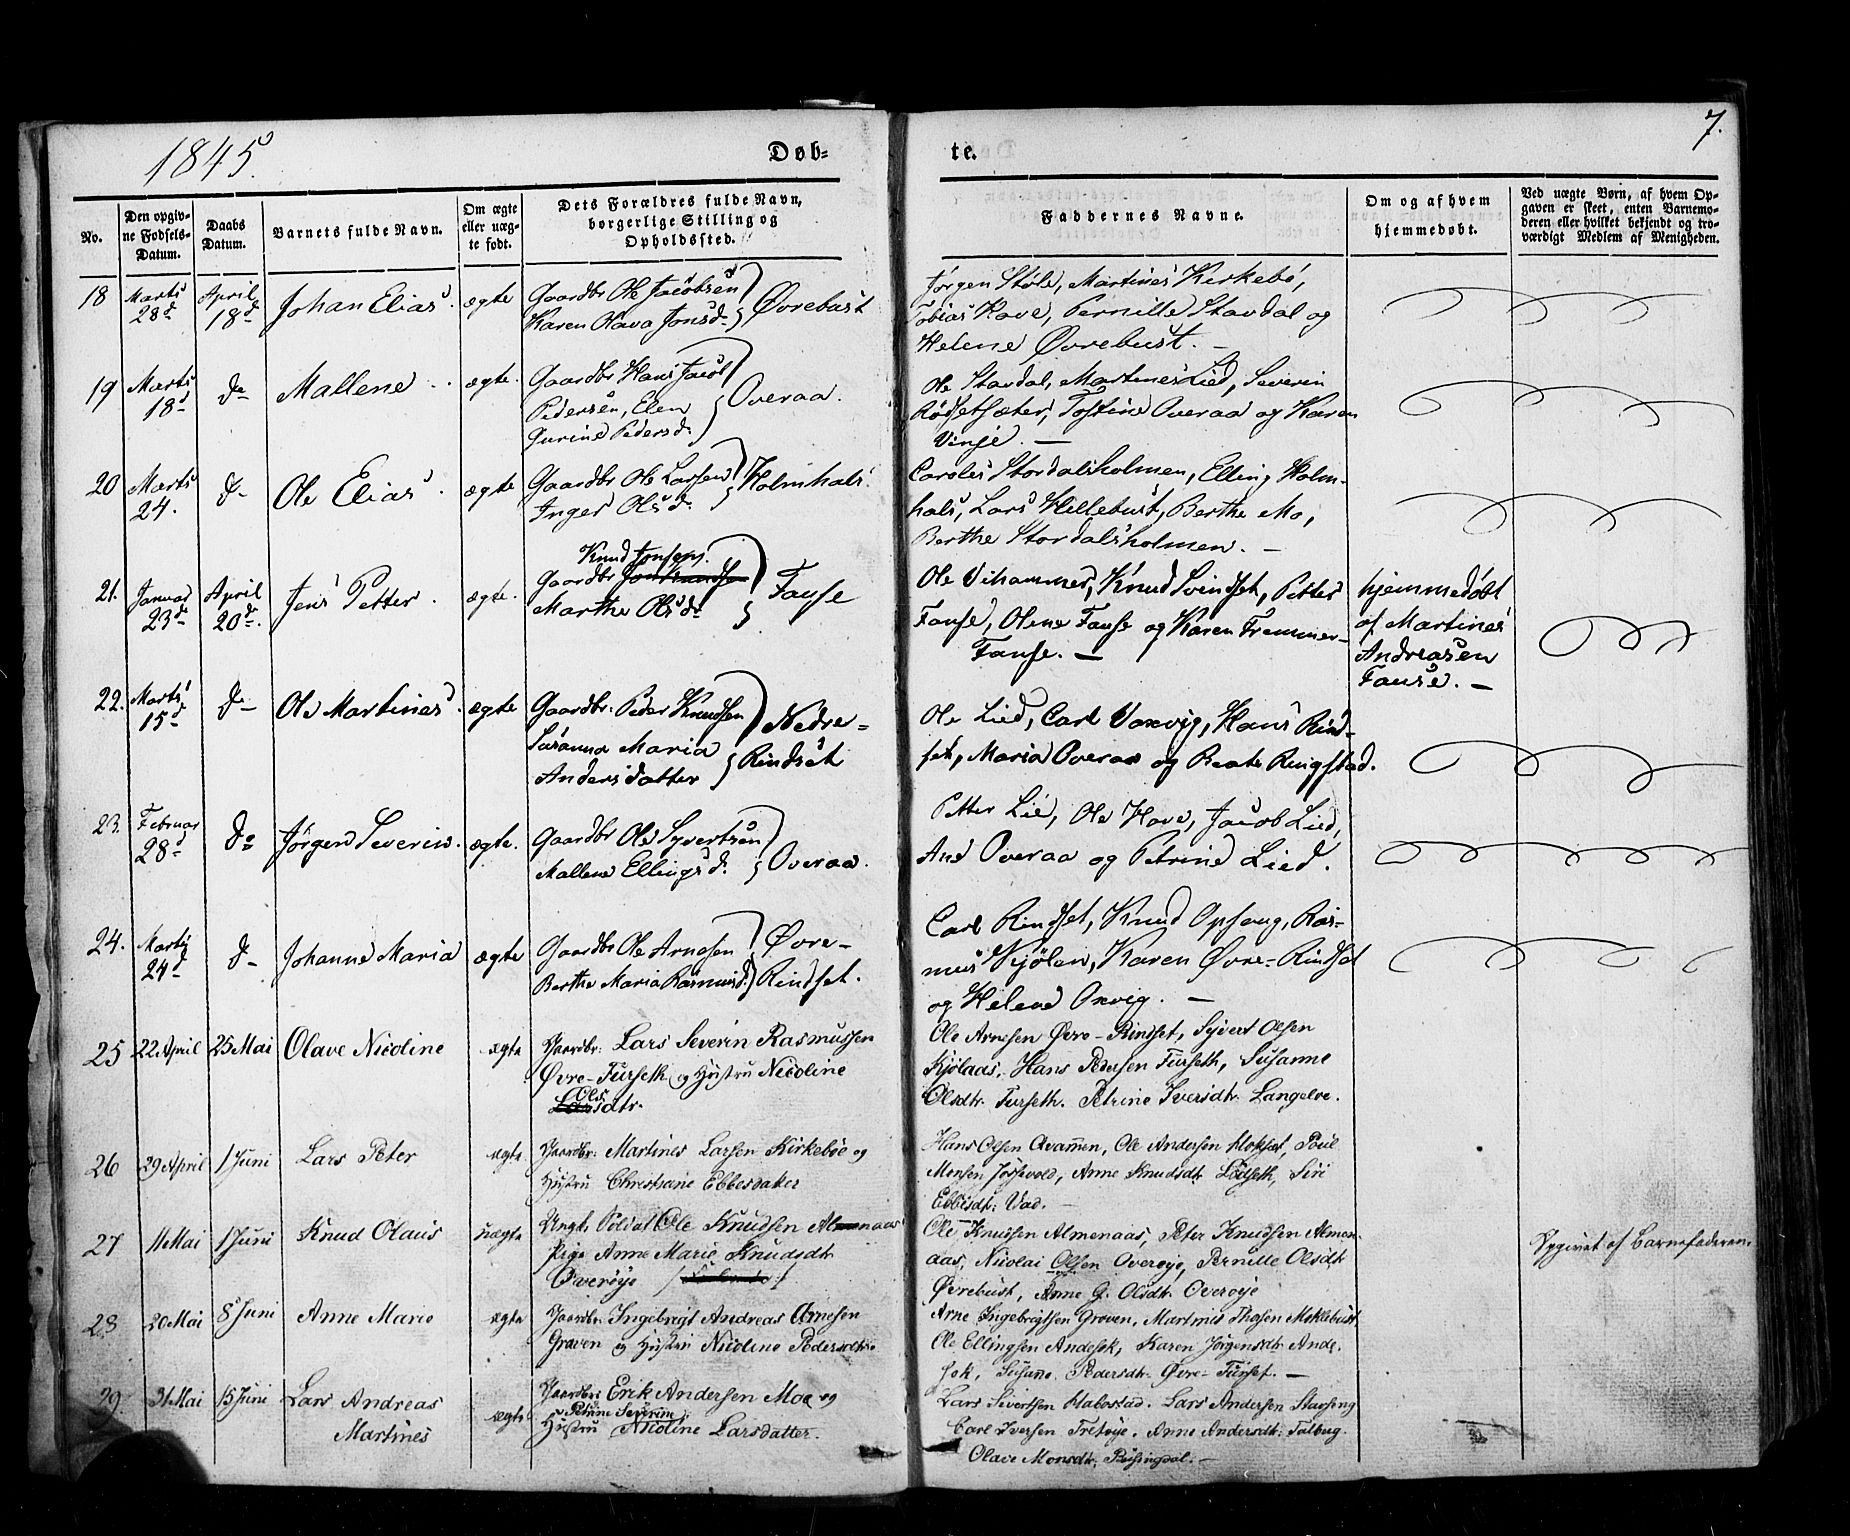 1845.
Døb-
te.
7.
No.
Den opgiv-
ne Fødsels-
Datum.
Daabs
Datum.
Barnets fulde Navn.
Om ægte
eller uæg-
te født.
Dets Forældres fulde Navn,
borgerlige Stilling og
Opholdssted.
Faddernes Navne.
Om og af hvem
hjemmedøbt.
Ved uægte Børn, af hvem Op-
gaven er skeet, enten Barnemo-
deren eller hvilket bekjendt og tro-
værdigt Medlem af Menigheden.
18 Marts 28d April 18d Johan Elias. ægte Gaardbr Ole Jacobsen
Karen Olava Jonsd. Øvrebust
Jørgen Støle, Martines Kirkebö,
Tobias Hove, Pernille Stavdal og
Helene Øvrebust. —
19 Marts 18d do Mallene ægte. Gaardbr Hans Jacob
Pedersen, Elen
Gurine Pedersd. Overaa.
Ole Stavdal, Martines Lied, Severin
Rødsetsæter, Tostine Overaa og Karen
Vinje. —
20 Marts 24. do Ole Elias. ægte Gaardbr Ole Larsen
Inger Olsd. Holmhals.
Caroles Stordalsholmen, Elling Holm-
hals, Lars Hellebust, Berthe Mo,
Berthe Stordalsholmen. —
21. Januar 23d April 20d. Jens Petter. ægte. Knud Jonsens.
Gaardbr Jon Knudsen
Marthe Olsdr Fause
Ole Vihammer, Knud Svindset, Petter
Fause, Olene Fause og Karen Fremmer-
Fause. —
hjemmedøbt
af Martines
Andreasen
Fause. —
22. Marts 15d do Ole Martines. ægte Gaardbr: Peder Knudsen
Susanna Maria
Andersdatter Nedre-
Rindset
Ole Lied, Carl Vaxvig, Hans Rind-
set, Maria Overaa og Beate Ringstad.
23. Februar 28d do Jørgen Severin. ægte. Gaardbr Ole Syvertsen
Mallene Ellingsd. Overaa.
Petter Lie, Ole Hove, Jacob Lied,
And Overaa og Petrine Lied.
24. Marts 24d do Johanne Maria ægte Gaardbr Ole Arnesen
Berthe Maria Rasmusd. Øvre-
Rindset.
Carl Rindset, Knud Opsaug, Ras-
mus Kjölen, Karen Øvre-Rindset
og Helene Oxvig. —
25 22 April 25 Mai Olave Nicoline ægte Gaardbr: Lars Severin Rasmussen
Øvre-Furseth og Hustru Nicoline
Ols
Larsdtr.
Ole Arnesen Øvre-Rindset, Syvert Olsen
Kjölaas, Hans Pedersen Furseth, Susanne
Olsdtr. Furseth. Petrine Iversdtr. Langelve.
26 29 April 1 Juni Lars Peter ægte Gaardbr: Martines Larsen Kirkeböe og
Hustru Christiane Ebbesdatter
Hans Olsen Qvammen, Ole Andersen Kloksæt, Poul
Monsen Jössevold, Anne Knudsdtr Lödseth, Siri
Ebbesdtr: Vad. —
27 11 Mai 1 Juni Knud Olaus uægte Ungk. Soldat Ole Knudsen Almenaas
Pige Anne Marie Knudsdtr
Overöye
Ole Knudsen Almenaas, Peter Knudsen Almen-
aas, Nicolai Olsen Overöye, Pernille Olsdtr
Øvrebust, Anne G. Olsdtr. Overöye
Opgivet af Barnefaderen.
28 20 Mai 8 Juni Anne Marie ægte Gaardbr: Ingebrigt Andreas Arnesen
Graven og Hustru Nicoline Pedersdtr.
Arne Ingebrigtsen Groven, Martinus Thosen Meklebust
Ole Ellingsen Andesok, Karen Jörgensdtr Ande-
sok, Susanne Pedersdtr. Øvre-Furset. —
29 31 Mai 15 Juni Lars Andreas
Martines ægte Gaardbr: Erik Andersen Moe og
Petrine Severine
Hustru Nicoline Larsdatter.
Lars Sivertsen Habostad. Lars Andersen Stavseng
Carl Iversen Tretöye. Anne Andersdtr: Talberg.
Olave Monsdtr. Röisingdal. —